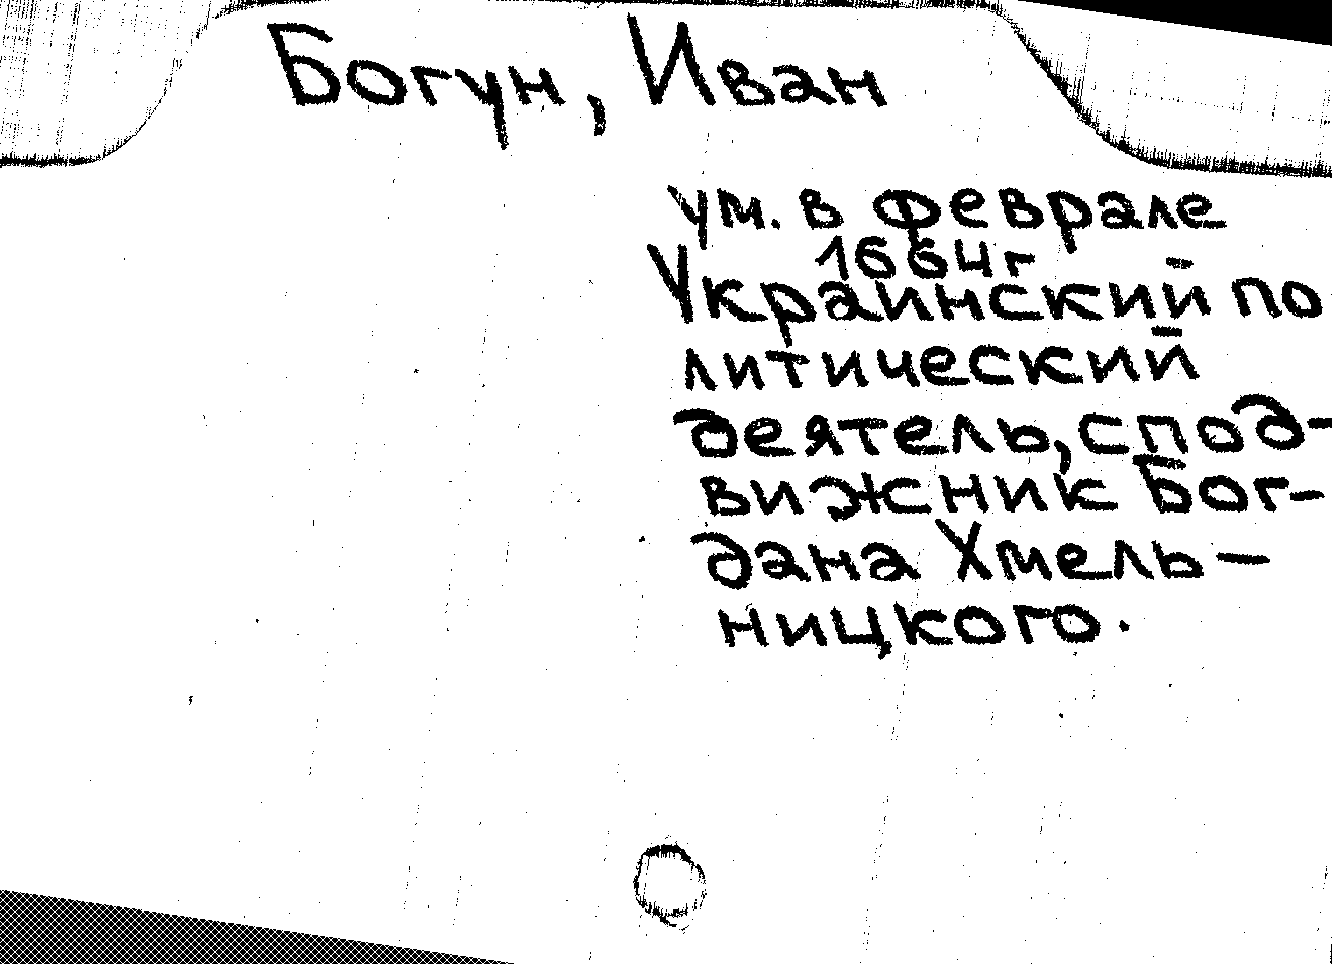 Богун, Иван
ум. в феврале
1664г
Украинский по
литический
деятель, спод-
вижник Бог-
дана Хмель-
ницкого.